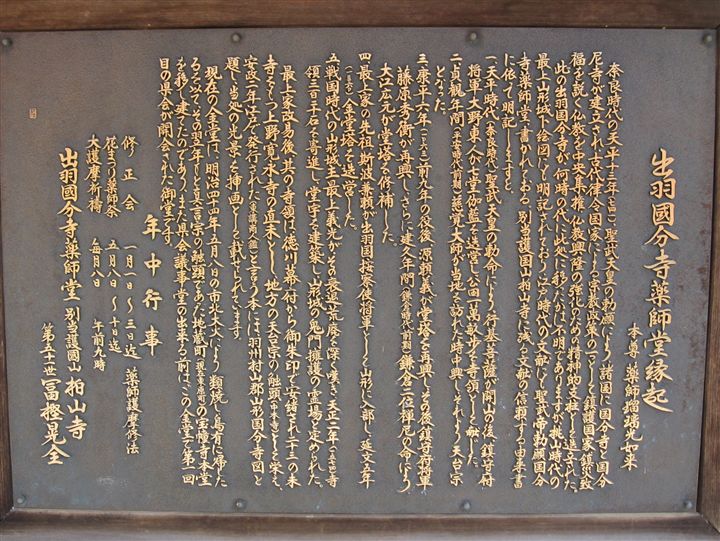 出羽國分寺薬師堂縁起
本尊 薬師瑠璃光如来
奈良時代の天平十三年(七四一)聖武天皇の勅願により諸国に国分寺と国分
尼寺が建立され古代律令国家による宗教政策の一つとして鎮護国家鎮災致
福を説く仏教を中央集権、仏教興隆の強化のための精神的支柱として進められた。
此の出羽国分寺が何時の代に此処に移ったかは不明でありますが、桃山時代の
最上山形城下絵図にも明記されており、江戸時代の文献にも聖武帝勅願国分
寺薬師堂と書かれておる。別当護国山柏山寺に残る文献の信頼する由来書
に依って明記しますと、
一、天平時代(奈良時代)聖武天皇の勅命により行基菩薩が開山の後、鎮守府
将軍大野東人が七堂伽藍を造営し公田一萬畝歩を寺領として献じた。
二、貞観年間(平安時代前期)慈覚大師が当地を訪れた時中興しそれより天台宗
となった。
三、康平六年(一〇六三)前九年の役後、源頼義が堂塔を再興しその後鎮守府将軍
藤原秀衡が再興し、さらに建久年間(鎌倉時代前期)鎌倉二位禅尼の命により
大江広元が堂塔を修補した。
四、最上家の先祖斯波兼頼が出羽国按察使将軍として山形に入部し延文五年
金堂塔を造営した。
五、戦国時代の山形城主最上義光がその衰退荒廃を深く嘆き、天正二年
領三百三十石を寄進し、堂宇を建築し、山形城の鬼門擁護の霊場と定められた。
最上家改易後、其の寺領は徳川幕府から御朱印で安緒され二十三の末
寺をもつ上野寛永寺の直末として、地方の天台宗の触頭(中本寺)として栄え、
安政二年に江戸で発行された と言う本には羽州村山郡山形国分寺図と
題し当処の光景を挿画として載せられています。
現在の金堂は、明治四十四年五月八日の市北大火により類焼し烏有に帰した
るを以てその翌年もと真言宗の触頭であった地蔵町 の宝幢寺本堂
を移し建てたのであり、また県会議事堂の出来る前にこの金堂で第一回
目の県会が開会された御堂です。
年中行事
修正会 一月一日~三日迄 薬師護摩修法
花まつり薬師祭 五月八日~十日迄
大護摩祈祷 毎月八日 午前九時
出羽國分寺薬師堂 別当護國山 柏山寺
第五十一世 冨樫晃全